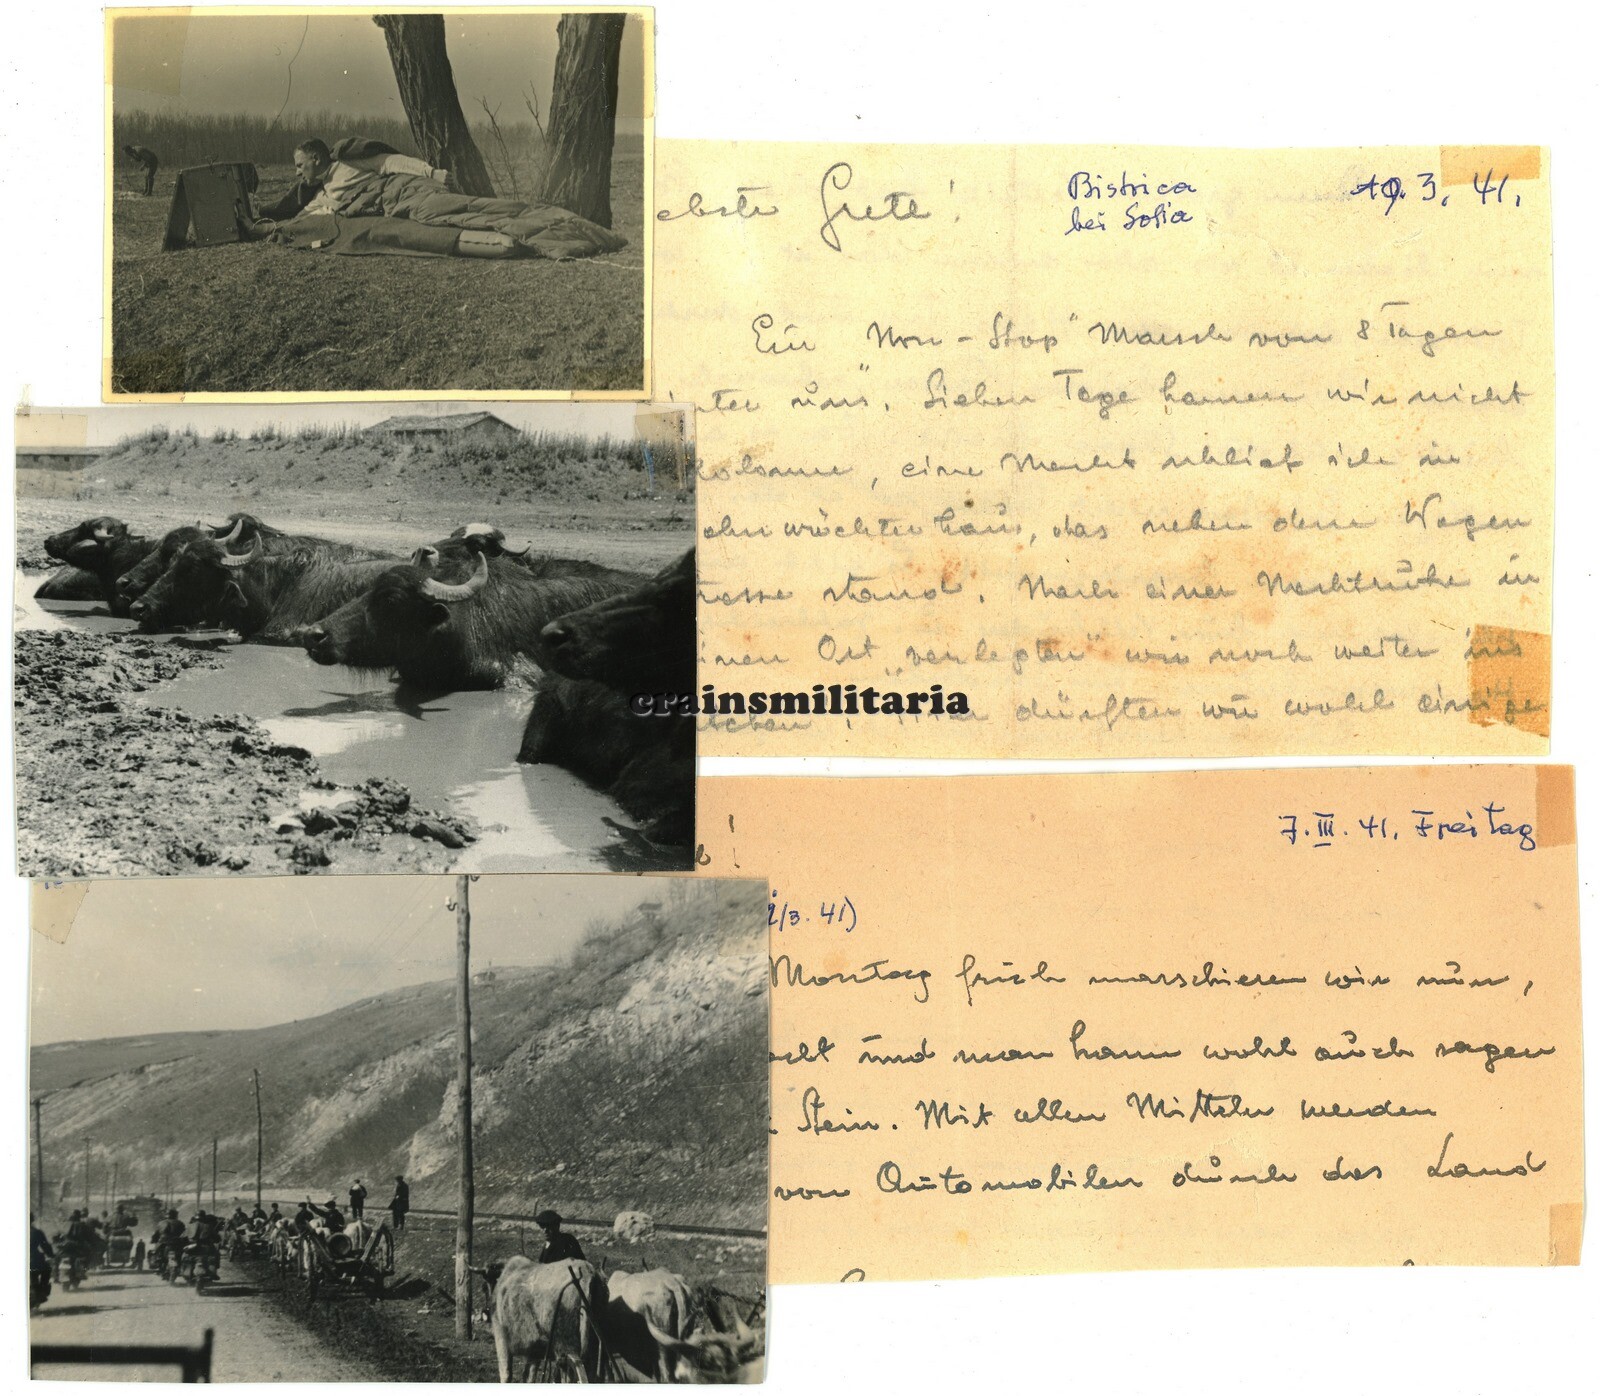 ebste Grete!
Bistrica
bei Sofia
19. 3. 41.
Ein "Non-Stop" Marsch von 8 Tagen
hinter uns. Sieben Tage kamen wir nicht
Kolonne, eine Nacht schlief ich in
ahnwächterhaus, das neben dem Wagen
trasse stand. Nach einer Nachtruhe in
inen Ort "verlegten" wir noch weiter ins
dürften wir wohl einige
crainsmilitaria
b!
7.III.41. Freitag
2/3.41)
Montag früh marschieren wir nun,
acht und man kann wohl auch sagen
Stein. Mit allen Mitteln werden
von Automobilen durch das Land